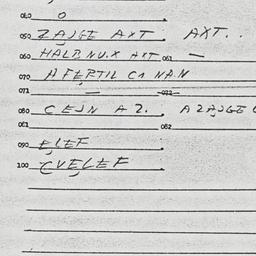 020 O
050 ZAJGE AXT AXT..
060 HALB.NU.X AXT 061 —
070 A FERTIL CA NA.N
071 — 072 —
080 CEJN AZ. AZAJGE
081 082
090 ELEF
100 CVELEF